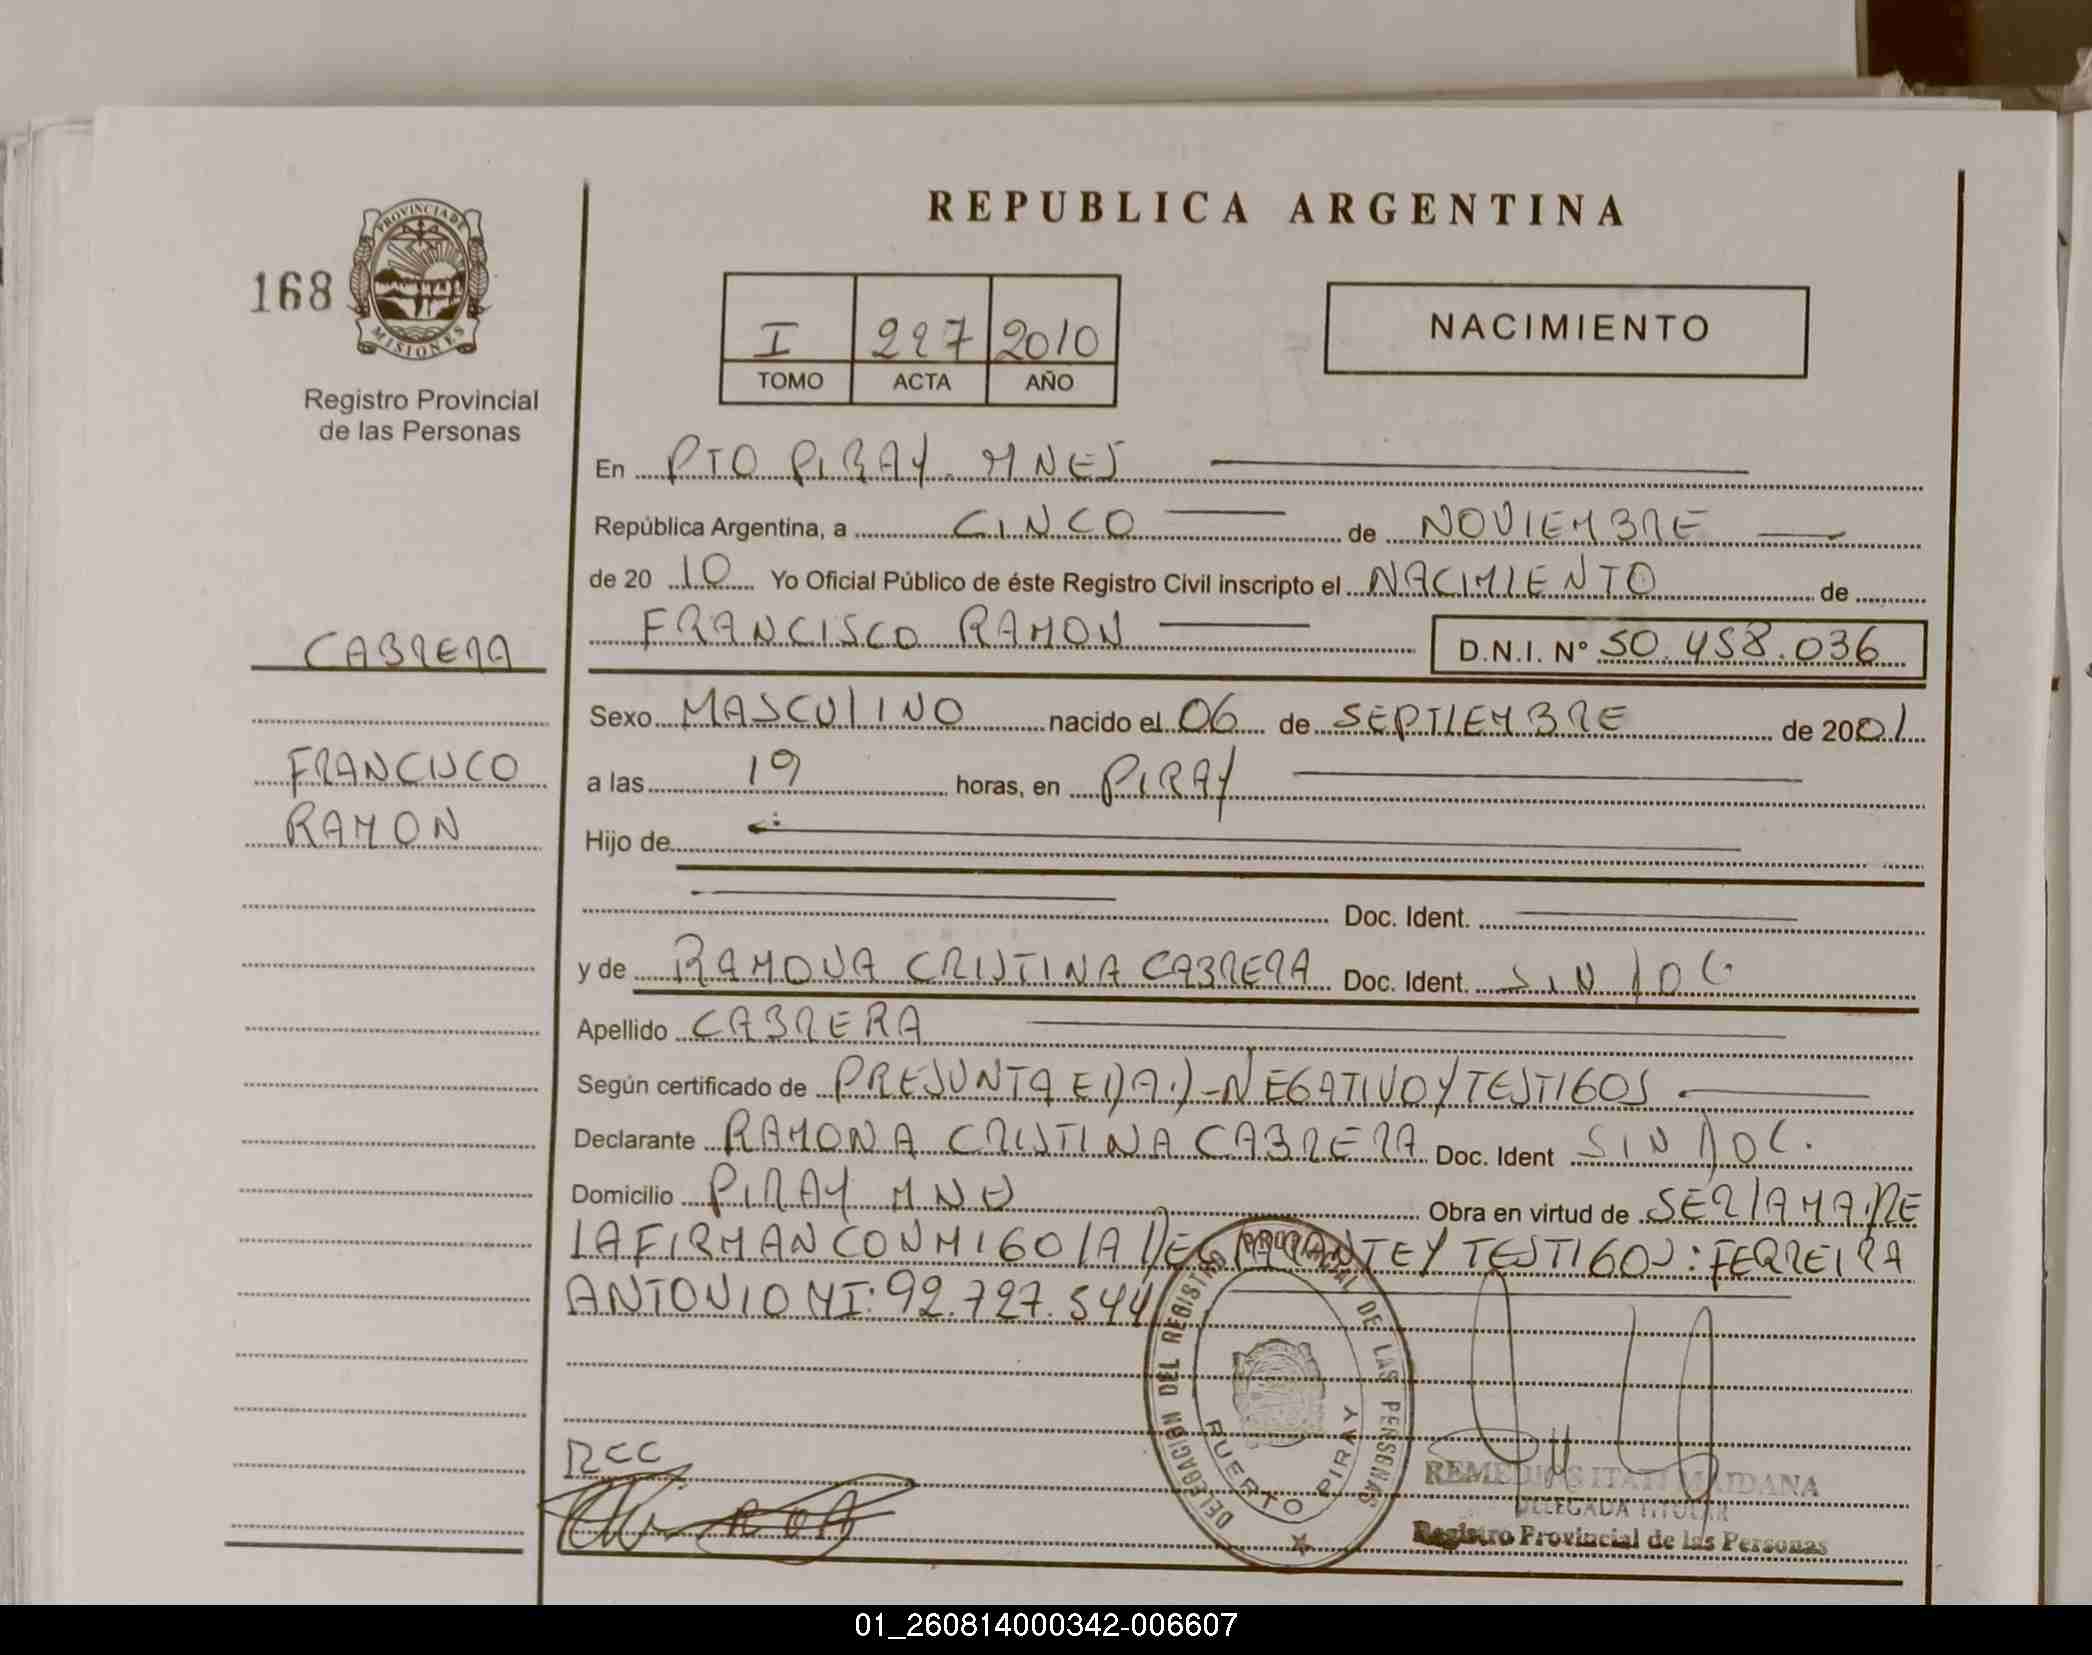 REPUBLICA ARGENTINA
168
PROVINCIA DE
MISIONES
Registro Provincial
de las Personas
I 227 2010
TOMO ACTA AÑO
NACIMIENTO
En PTO PIRAY. MNES
República Argentina, a CINCO de NOVIEMBRE
de 20 10 Yo Oficial Público de éste Registro Civil inscripto el NACIMIENTO de
FRANCISCO RAMON D.N.I. N° 50.458.036
CABRERA
FRANCISCO
RAMON
Sexo MASCULINO nacido el 06 de SEPTIEMBRE de 2001
a las 19 horas, en PIRAY
Hijo de
Doc. Ident.
y de RAMONA CRISTINA CABRERA Doc. Ident. SIN DOC.
Apellido CABRERA
Según certificado de PRESUNTA EDAD-NEGATIVO Y TESTIGOS
Declarante RAMONA CRISTINA CABRERA Doc. Ident SIN DOC.
Domicilio PIRAY MNES Obra en virtud de SER LA MADRE
LA FIRMAN CONMIGO LA DECLARANTE Y TESTIGOS: FERREIRA
ANTONIO MI: 92.727.544
DELEGACION DEL REGISTRO PROVINCIAL DE LAS PERSONAS
PUERTO PIRAY
RCC
REMEDIOS ITATI MAIDANA
DELEGADA TITULAR
Registro Provincial de las Personas
01_260814000342-006607